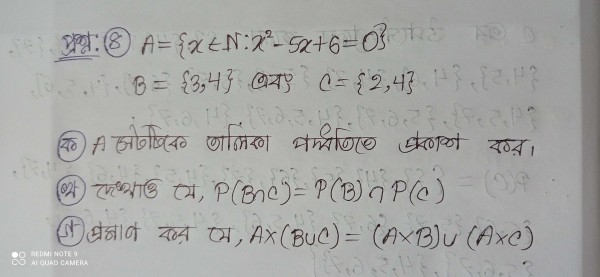 প্রশ্ন: ④ A = {x ∈ N : x² - 5x + 6 = 0}
B = {3,4} এবং C = {2,4}
ক) A সেটটিকে তালিকা পদ্ধতিতে প্রকাশ কর।
খ) দেখাও যে, P(B∩C) = P(B) ∩ P(C)
গ) প্রমাণ কর যে, A×(B∪C) = (A×B)∪(A×C)
REDMI NOTE 9
AI QUAD CAMERA